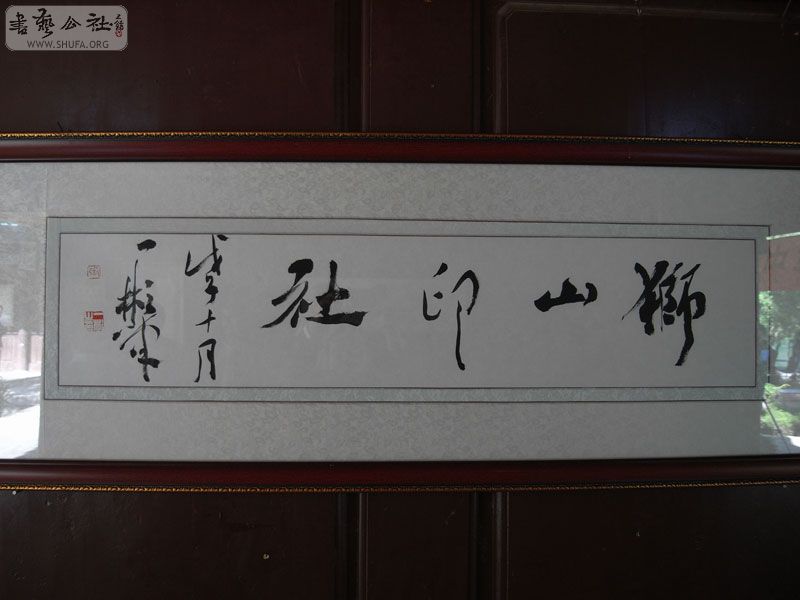 書藝公社
WWW.SHUFA.ORG
獅山印社
戊子十月